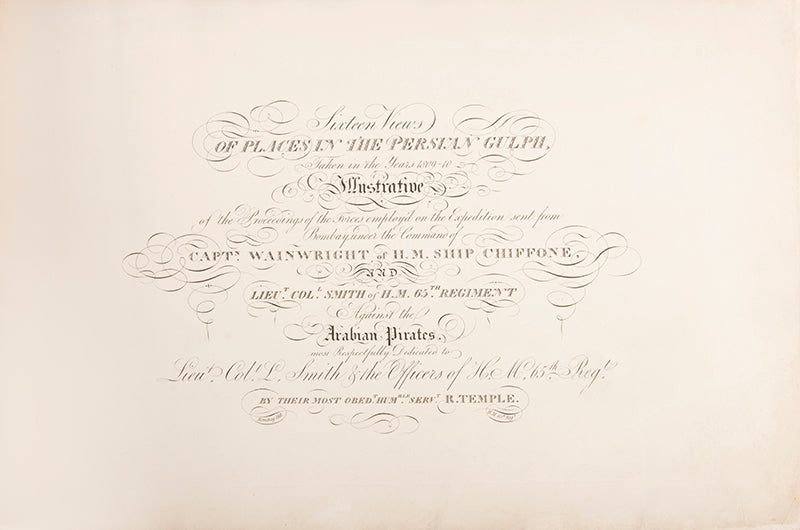 Sixteen Views
OF PLACES IN THE PERSIAN GULPH,
Taken in the Years 1809-10
Illustrative
of the Proceedings of the Forces employ'd on the Expedition sent from
Bombay, under the Command of
CAPTN. WAINWRIGHT of H.M. SHIP CHIFFONE,
AND
LIEUT. COLL. SMITH of H.M. 65TH REGIMENT
Against the
Arabian Pirates,
most Respectfully Dedicated to
Lieut. Coll. L. Smith & the Officers of H.M. 65th Regt.
BY THEIR MOST OBEDT. HUMBLE. SERVT. R. TEMPLE.